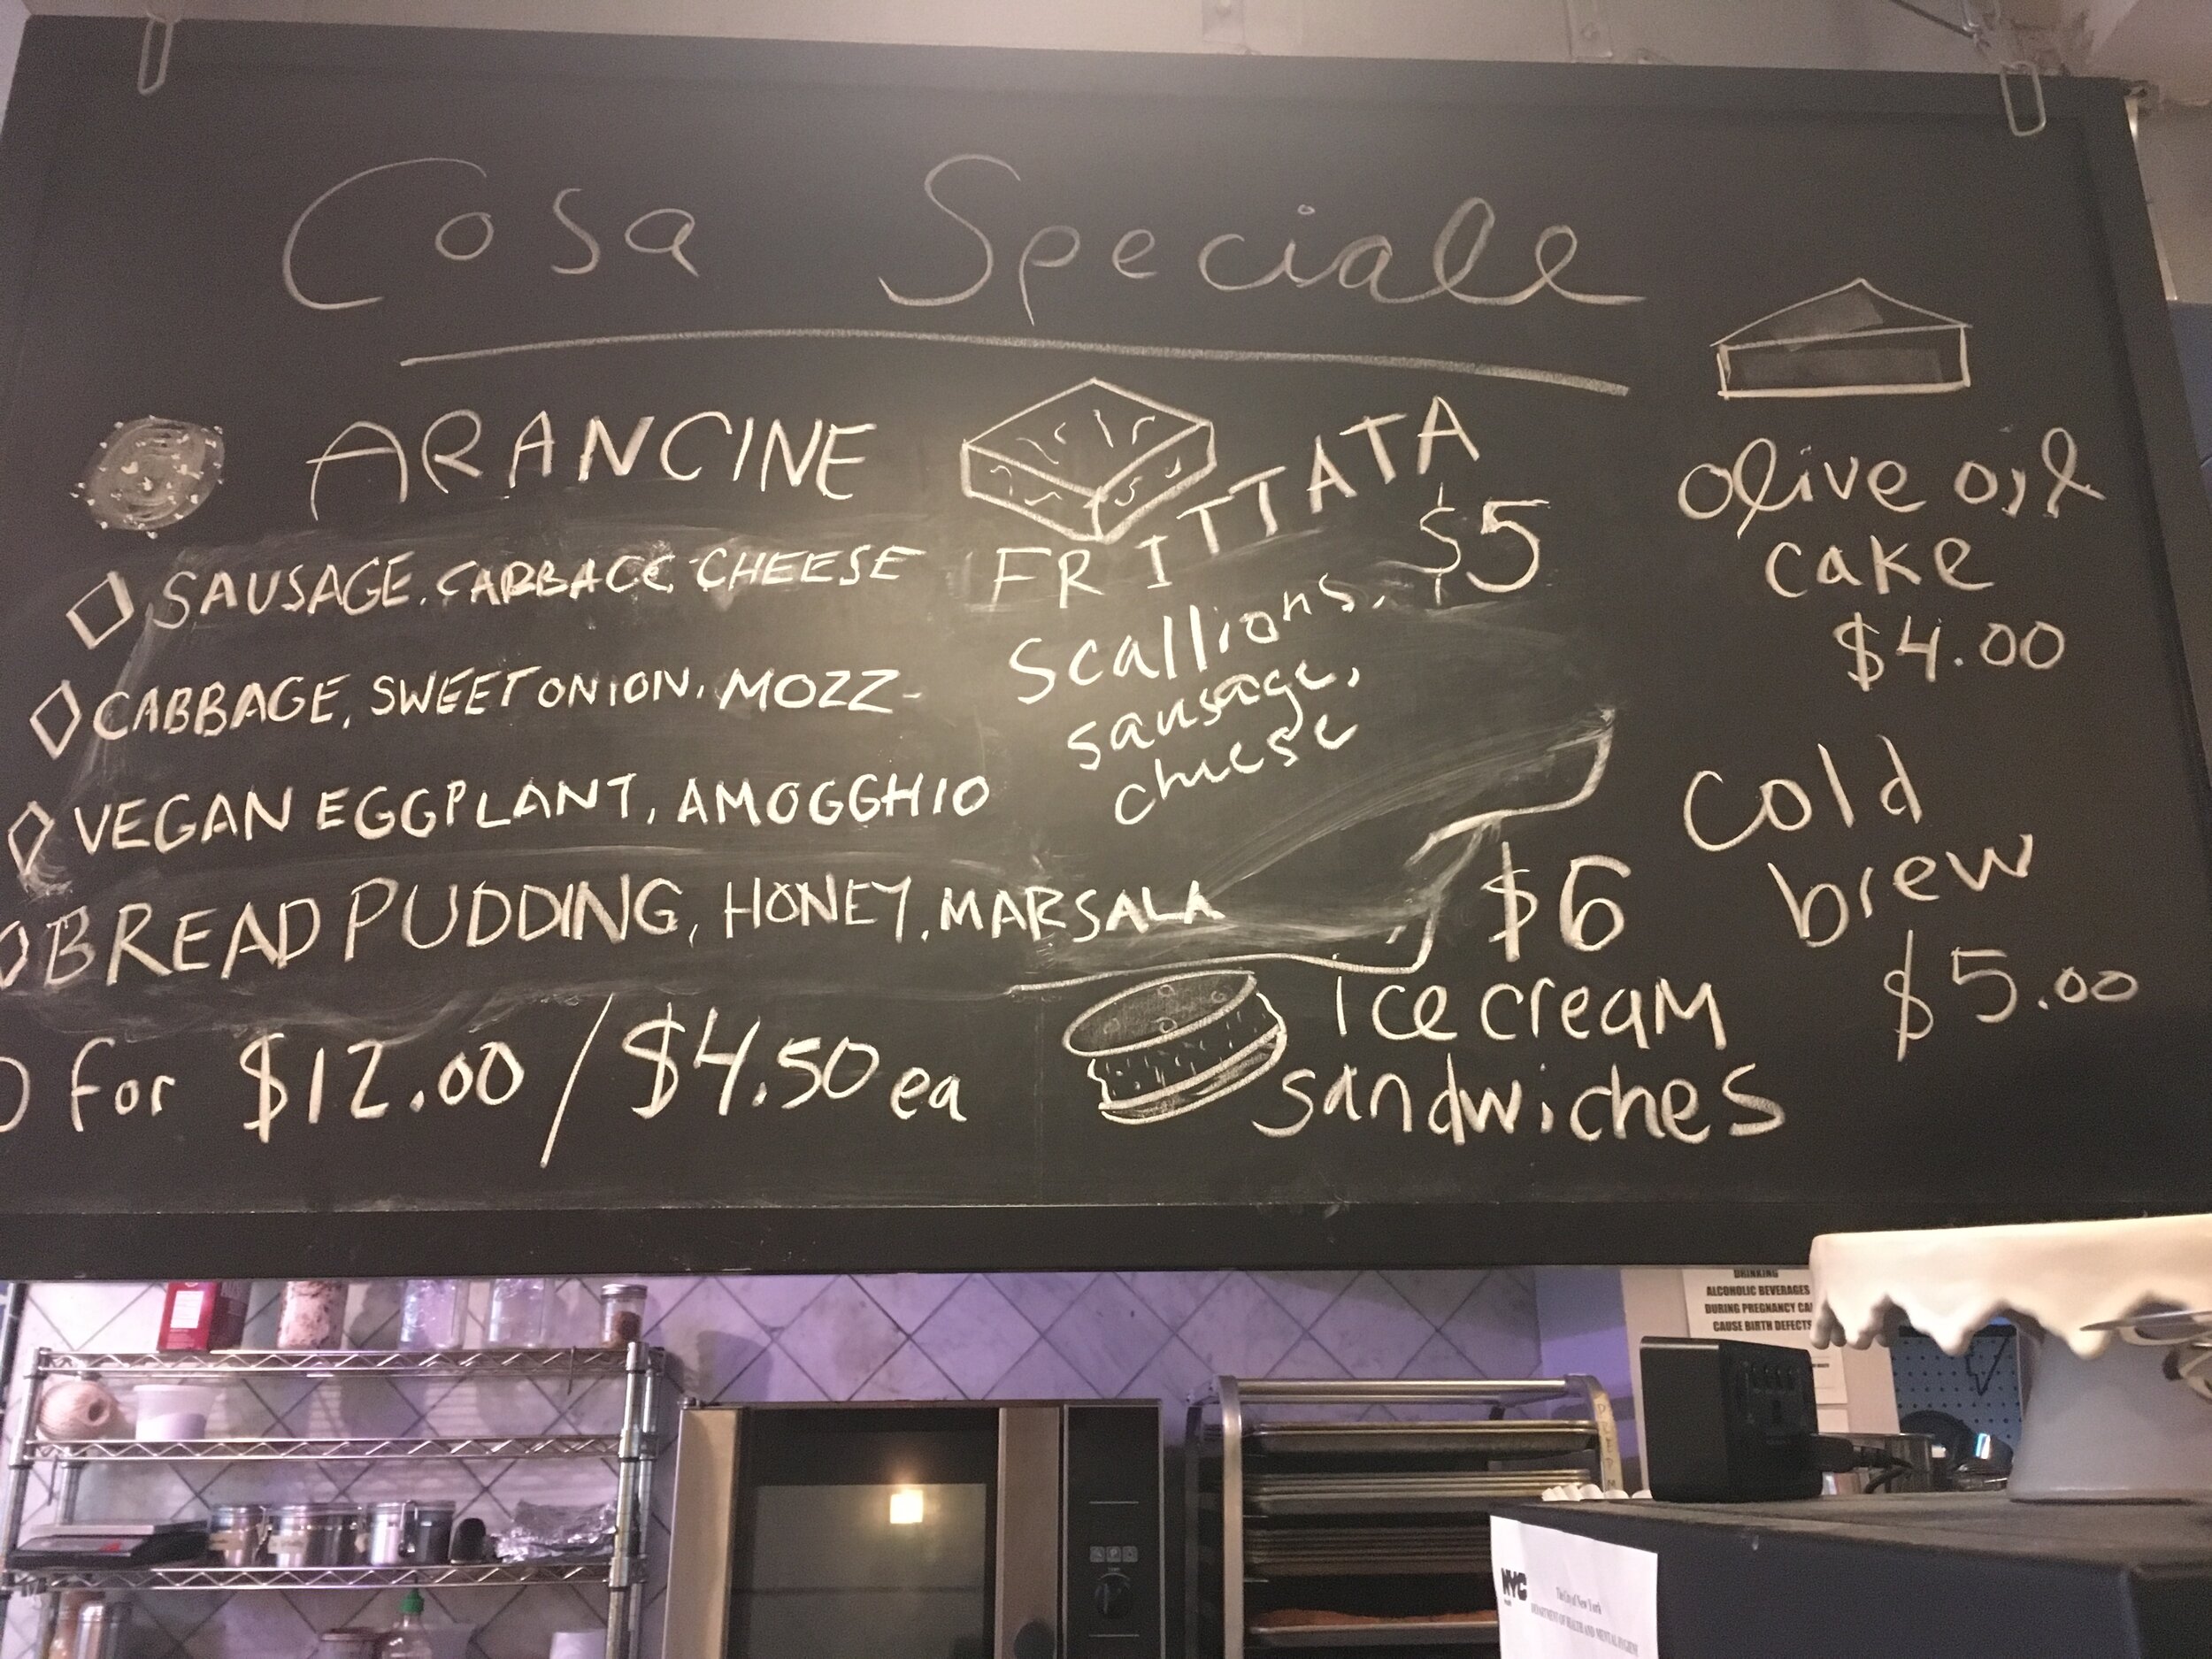 Cosa Speciale
ARANCINE
SAUSAGE, CABBAGE CHEESE
CABBAGE, SWEET ONION, MOZZ-
VEGAN EGGPLANT, AMOGGHIO
BREAD PUDDING, HONEY, MARSALA
for $12.00 / $4.50 ea
FRITTATA
$5
Scallions,
sausage,
cheese
$6
ice cream
sandwiches
olive oil
cake
$4.00
Cold
brew
$5.00
DRINKING
ALCOHOLIC BEVERAGES
DURING PREGNANCY CA
CAUSE BIRTH DEFECTS
NYC
The City of New York
DEPARTMENT OF HEALTH AND MENTAL HYGIENE